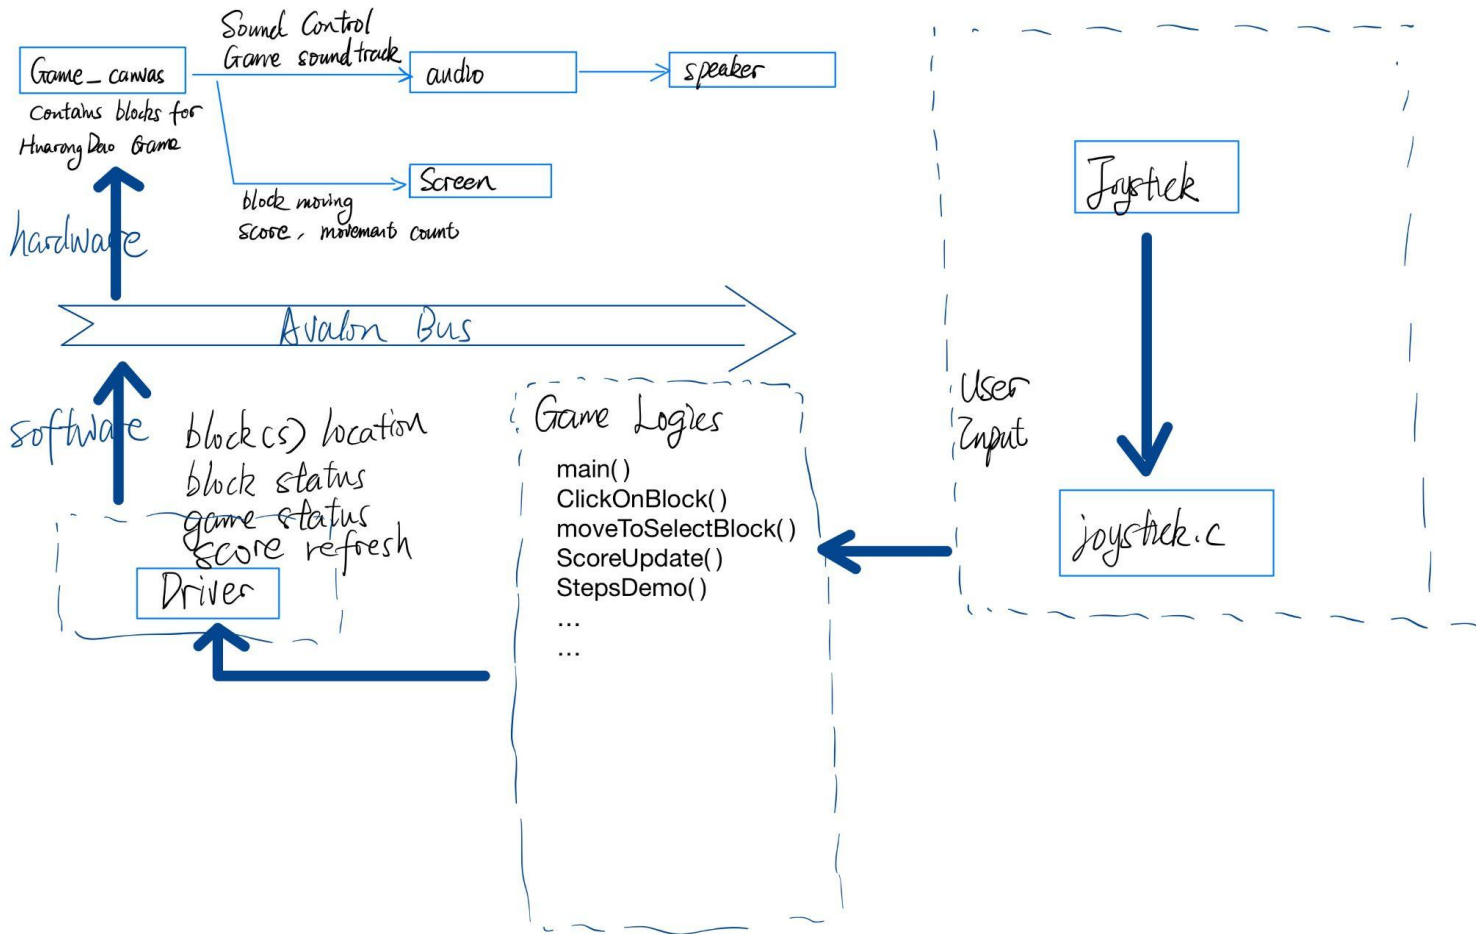 Sound Control
Game soundtrack
Game_canvas
audio
speaker
contains blocks for
HuarongDao Game
Screen
block moving
score, movement count
hardware
Avalon Bus
software
block(s) location
block status
game status
score refresh
Driver
Game Logics
main()
ClickOnBlock()
moveToSelectBlock()
ScoreUpdate()
StepsDemo()
...
...
User
Input
Joystick
joystick.c